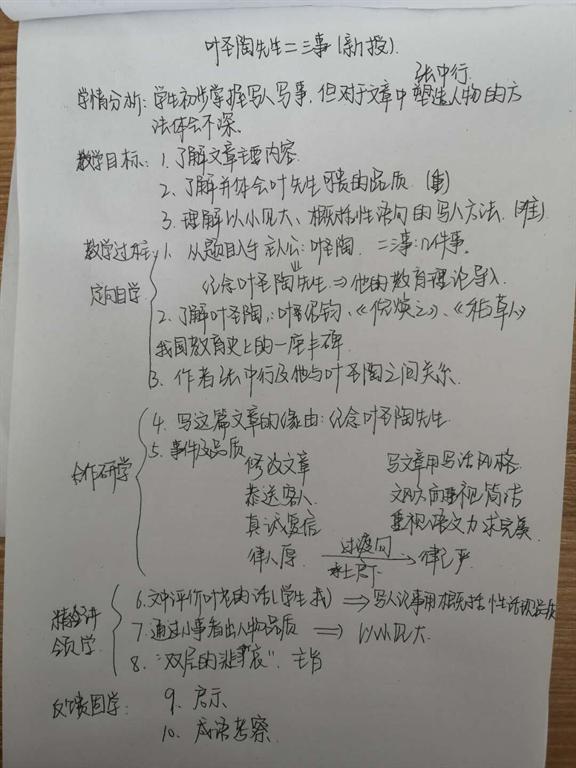 叶圣陶先生二三事(新授).
张中行.
学情分析: 学生初步掌握写人写事, 但对于文章中塑造人物的方
法体会不深.
教学目标: 1. 了解文章主要内容
2. 了解并体会叶先生可贵的品质. (重)
3. 理解以小见大、概括性语句的写人方法. (难)
教学过程: 1. 从题目入手 主人公: 叶圣陶. 二三事: 几件事。
定向自学
纪念叶圣陶先生 ⇒ 他的教育理论导入.
2. 了解叶圣陶: 叶绍钧、《倪焕之》、《稻草人》
我国教育史上的一座丰碑
3. 作者张中行及他与叶圣陶之间关系.
4. 写这篇文章的缘由: 纪念叶圣陶先生
合作研学
5. 事件及品质
修改文章 写文章用写话风格.
恭送客人 文风方面重视简洁
真诚复信 重视语文力求完美.
律人厚 过渡句 → 律己严.
承上启下
精讲领学
6. 文中评价叶老的话(学生找) ⇒ 写人记事用概括性话现品质
7. 通过小事看出人物品质 ⇒ 以小见大.
8. "双层的悲哀". 主旨
反馈固学: 9. 启示
10. 成语考察.